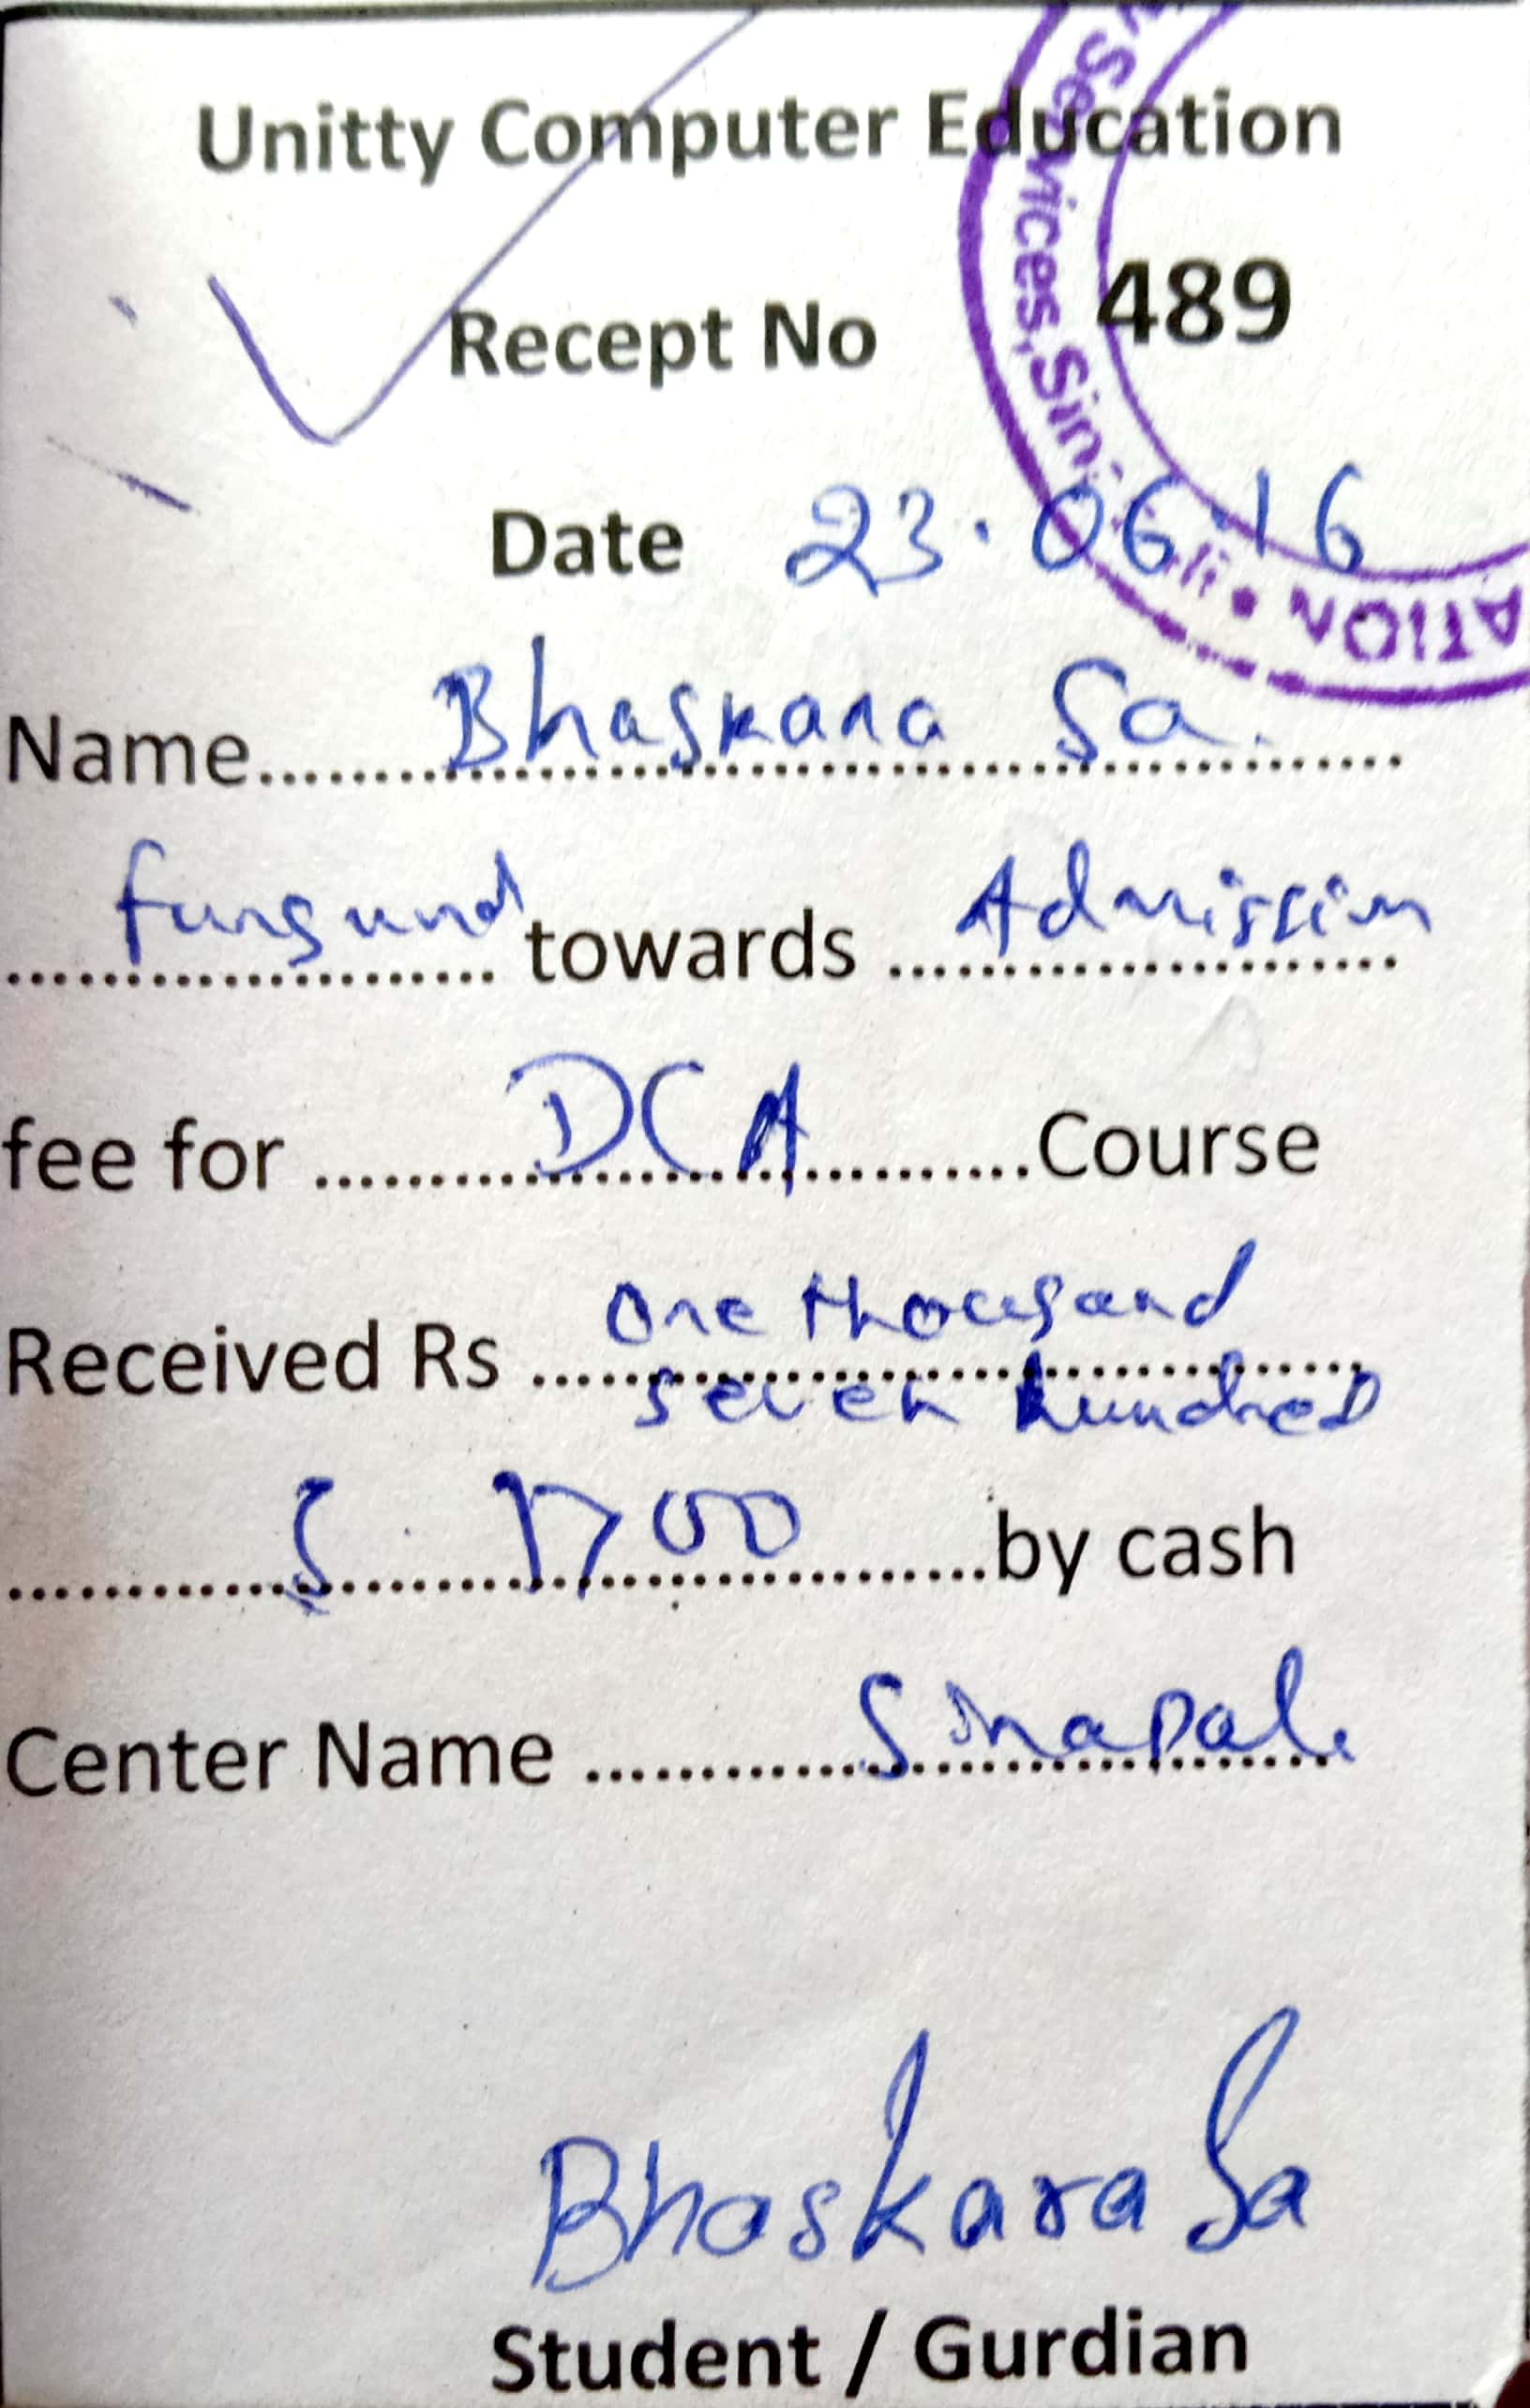 Unitty Computer Education
Recept No 489
Date 23.06.16
Name Bhaskara Sa.
fursund towards Admission
fee for DCA Course
Received Rs One thousand
seven hundred
1700 by cash
Center Name Sinapali
Bhaskara Sa
Student / Gurdian
Services, Sin
ATION